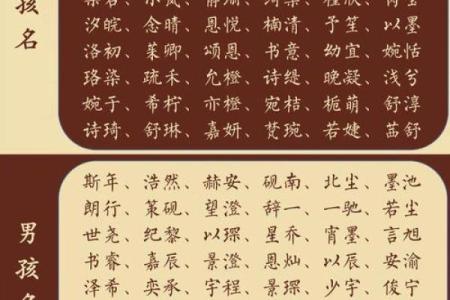 孩名
汐皖、念晴、恩悦、楠清、予笙、以墨
洛初、茉卿、颂恩、书意、幼宜、婉恬
珞染、疏禾、允橙、诗缇、晚凝、浅兮
婉于、希柠、亦橙、宛桔、栀萌、舒淳
诗琦、舒琳、嘉妍、梵琬、若婕、茜舒
男孩名
斯年、浩然、赫安、砚南、北尘、墨池
朗行、莱砚、望澄、辞一、一驰、若尘
世尧、纪黎、以琛、星乔、宵墨、言旭
书睿、嘉辰、景澄、恩灿、北辰、安渝
泽希、奕承、宇程、景琛、少宇、俊宁